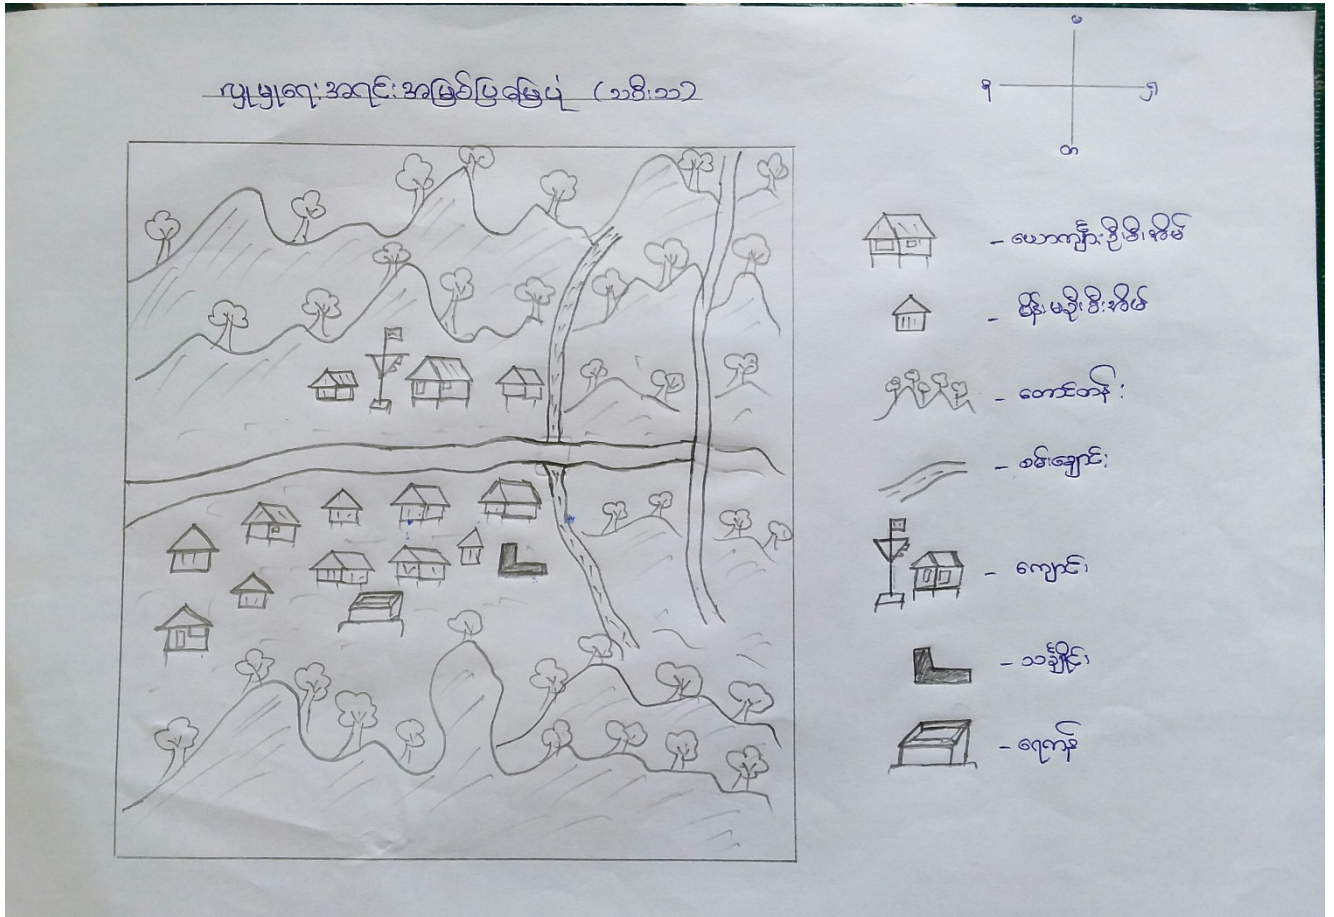 လူမှုရေးအရင်းအမြစ်ပြမြေပုံ (သစ်သာ)
မ
န
ရှ
တ
- ယောကျ်ားဦးစီးအိမ်
- မိန်းမဦးစီးအိမ်
- တောင်တန်း
- စမ်းချောင်း
- ကျောင်း
- သင်္ချိုင်း
- ရေကန်